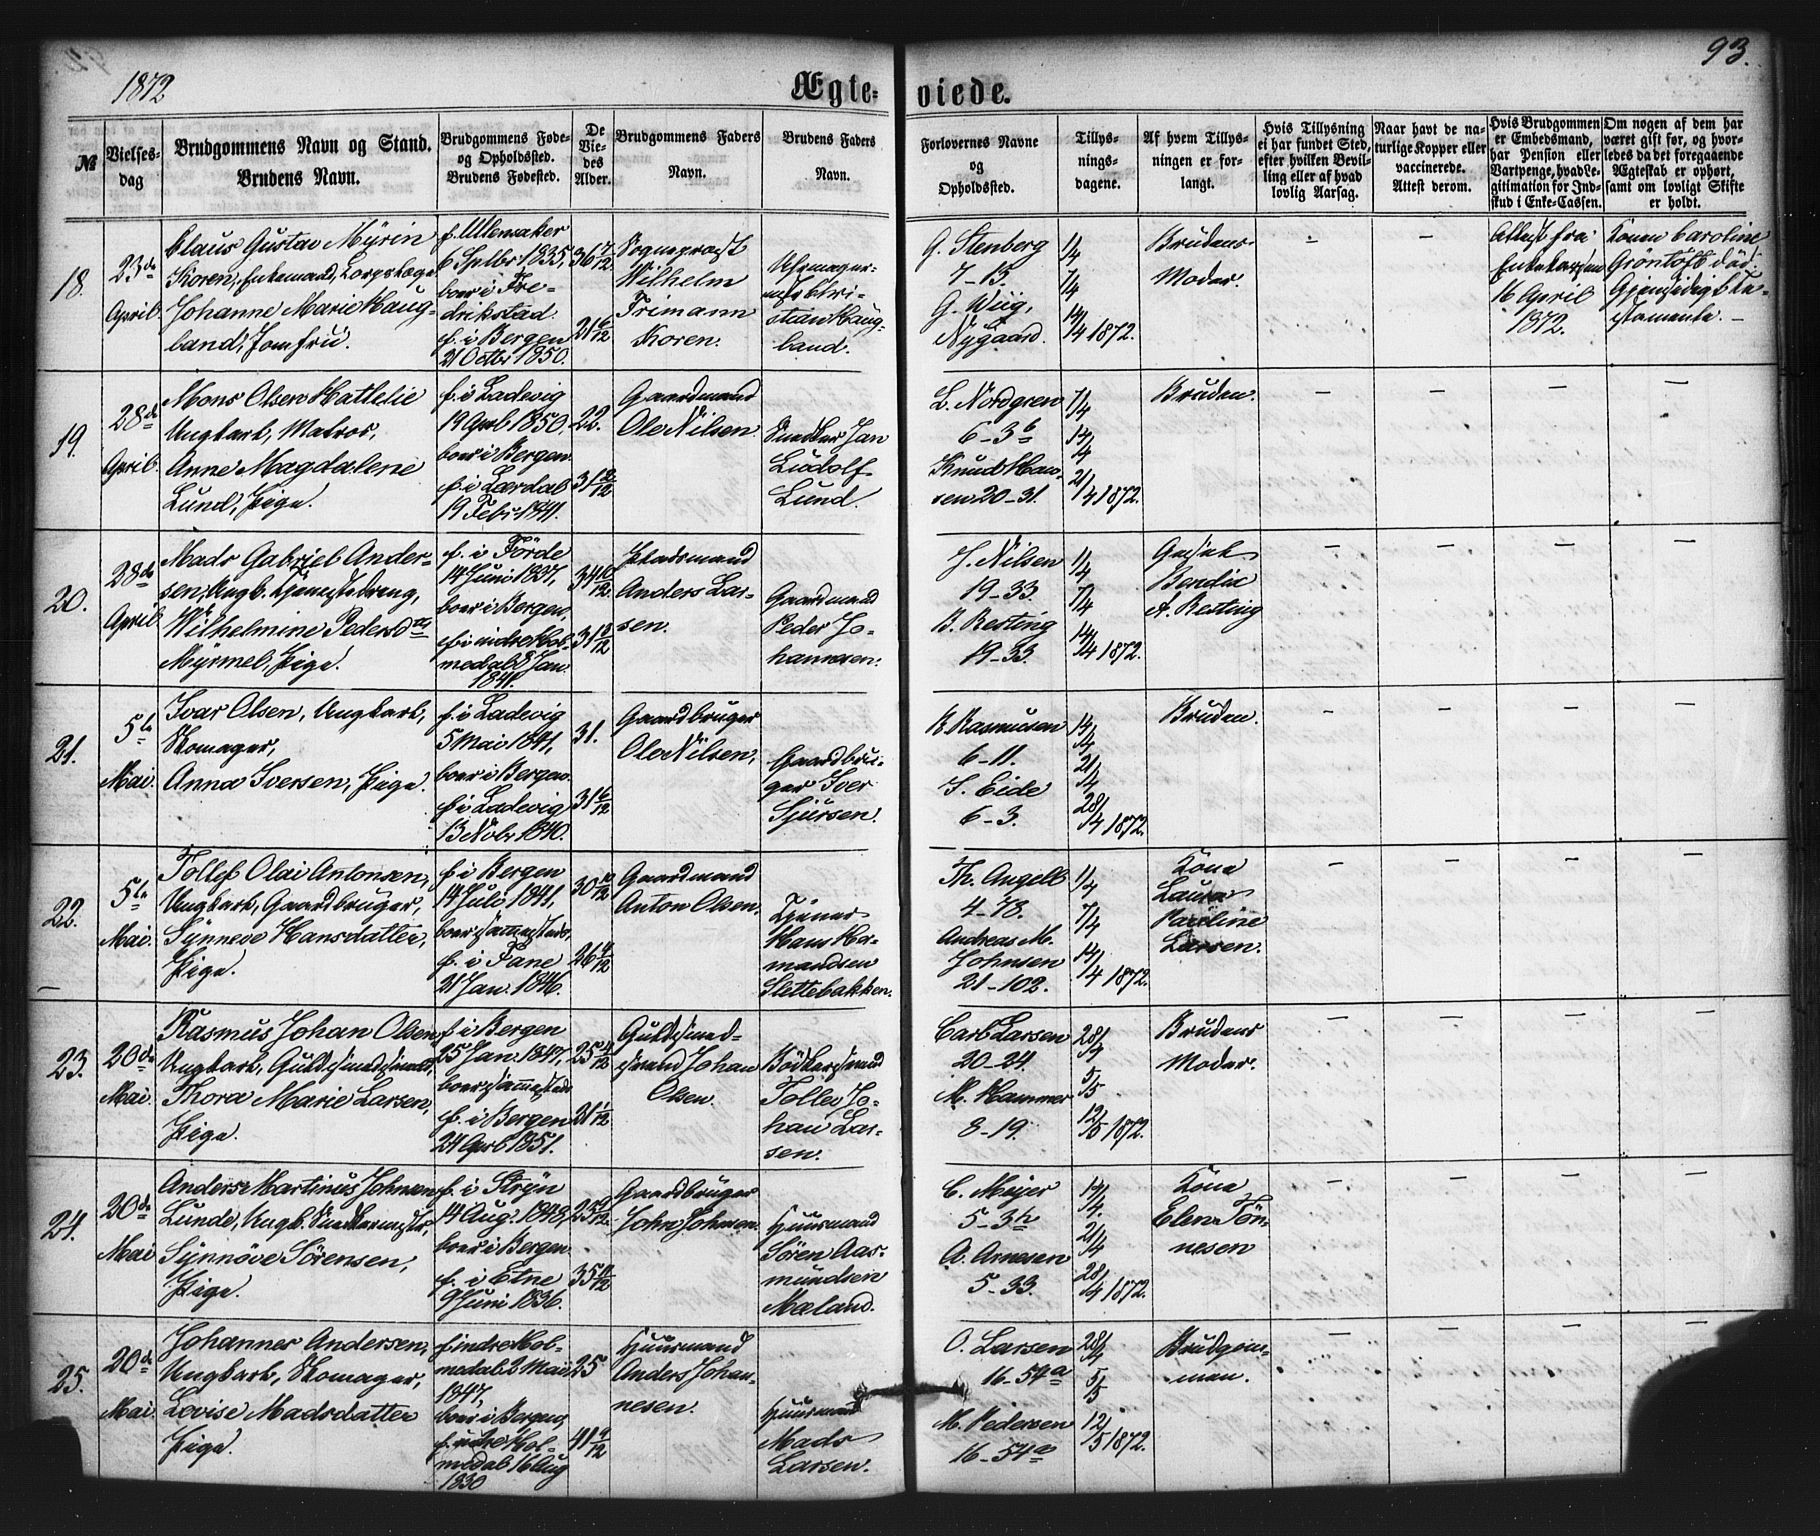 1872
Ægte-
viede.
93.
№
Vielses-
dag
Brudgommens Navn og Stand.
Brudens Navn.
Brudgommens Føde-
og Opholdssted.
Brudens Fødested.
De
Vie-
des
Alder.
Brudgommens Faders
Navn.
Brudens Faders
Navn.
Forlovernes Navne
og
Opholdssted.
Tillys-
nings-
dagene.
Af hvem Tillys-
ningen er for-
langt.
Hvis Tillysning
ei har fundet Sted,
efter hvilken Bevil-
ling eller af hvad
lovlig Aarsag.
Naar havt de na-
turlige Kopper eller
vaccinerede.
Attest derom.
Hvis Brudgommen
er Embedsmand,
har Pension eller
Vartpenge, hvad Le-
gitimation for Ind-
skud i Enke-Cassen.
Om nogen af dem har
været gift før, og hvor-
ledes da det foregaaende
Ægteskab er ophørt,
samt om lovligt Skifte
er holdt.
18.
23de
April
Claus Gustav Myrin
Koren, Enkemand, Corpslæge
Johanne Marie Haug-
land, Jomfru.
f. Ullensaker
6 Sptbr 1835,
boer i Fre-
drikstad.
f. i Bergen
21 Octbr 1850.
36 7/12
21 6/12
Sogneprest
Wilhelm
Frimann
Koren.
Uhrmager-
mester Kri-
stian Haug-
land.
G. Stenberg
7-13.
G. Wiig,
Nygaard.
1/4
7/4
14/4 1872.
Brudens
Moder.
-
-
Attest fra
Enkekassen
16 April
1872.
Konen Caroline
Grøntoft død.
Gjensidigt Te-
stamente. -
19.
28de
April
Mons Olsen Hatlelie
Ungkarl, Matros,
Anne Magdalene
Lund, Pige.
f. i Ladevig
19 Aprl 1850,
boer i Bergen.
f. i Lærdal
19 Febr 1841.
22.
31 2/12
Gaardmand
Ole Nilsen.
Snedker Jan
Ludolf
Lund.
L. Nordgren
6-3b
Knud Han-
sen 20-31.
7/4
14/4
21/4 1872.
Bruden.
-
-
-
-
20.
28de
April
Mads Gabriel Ander-
sen, Ungk. Tjenestedreng,
Wilhelmine Pedersdtr
Myrmel, Pige.
f. i Förde
14 Juni 1837,
boer i Bergen,
f. i indre Hol-
medal 8 Jan.
1841.
34 10/12
31 3/12
Pladsmand
Anders Lar-
sen.
Gaardmand
Peder Jo-
hannesen.
J. Nilsen
19-33.
B. Resting
19-33.
1/4
7/4
14/4 1872.
Bendix
A. Resting
-
-
-
-
21.
5te
Mai.
Ivar Olsen, Ungkarl,
Skomager,
Anna Iversen, Pige.
f. i Ladevig
5 Mai 1841,
boer i Bergen.
f. i Ladevig
13 Novbr 1840.
31.
31 6/12
Gaardbruger
Ole Nilsen,
Gaardbru-
ger Iver
Sjursen.
R. Rasmusen
6-11.
S. Eide
6-3.
14/4
21/4
28/4 1872.
Bruden.
-
-
-
-
22.
5te
Mai.
Tollef Olai Antonsen,
Ungkarl, Gaardbruger,
Synneve Hansdatter,
Pige.
f. i Bergen
14 Juli 1841,
boer sammesteds,
f. i Fane
21 Jan. 1846.
30 10/12
26 4/12
Gaardmand
Anton Olsen.
Tjener
Hans Ha-
mandsen
Slettebakken.
Th. Angell
4-78.
Andreas M.
Johnsen
21-102.
1/4
7/4
14/4 1872.
Kona
Laura
Pauline
Larsen.
-
-
-
-
23.
20de
Mai.
Rasmus Johan Olsen
Ungkarl, Guldsmedsvend,
Thora Marie Larsen,
Pige.
f. i Bergen
25 Jan. 1847,
boer sammesteds
f. i Bergen
24 Aprl 1851.
25 4/12
21 1/12
Guldsmed-
svend Johan
Olsen.
Bödkersvend
Tollev Jo-
han Lar-
sen.
Carl Larsen
20-24.
M. Hammer
8-19.
28/4
5/5
12/5 1872.
Brudens
Moder.
-
-
-
-
24.
20de
Mai
Anders Martinus Johnsen
Lunde, Ungk. Snedkermester,
Synnöve Sörensen,
Pige.
f. i Stryn
14 Aug. 1848,
boer i Bergen
f. i Etne
9 Juni 1836.
23 9/12
35 11/12
Gaardbruger
John Johnsen.
Huusmand
Sören Aas-
mundsen
Mæland.
C. Mejer
5-3h
A. Arnesen
5-33.
14/4
21/4
28/4 1872.
Kona
Elen Tön-
nesen
-
-
-
-
25.
20de
Mai
Johannes Andersen,
Ungkarl, Skomager,
Lovise Madsdatter
Pige.
f. indre Hol-
medal 2 Mai
1847,
boer i Bergen,
f. indre Hol-
medal 16 Aug
1830
25
41 9/12
Huusmand
Anders Johan-
nesen.
Huusmand
Mads
Larsen.
O. Larsen
16-54a
M. Pedersen
16-54a
28/4
5/5
12/5 1872.
Brudgom-
men.
-
-
-
-